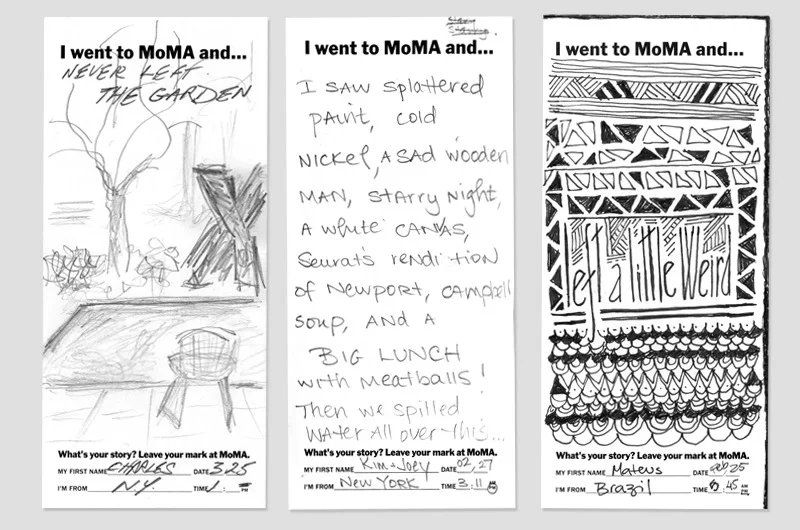 I went to MoMA and...
NEVER LEFT
THE GARDEN
What's your story? Leave your mark at MoMA.
MY FIRST NAME CHARLES DATE 3.25
I'M FROM N.Y. TIME PM
Starry
I went to MoMA and...
I SAW splattered
paint, cold
NICKel, A SAD wooden
MAN, Starry Night,
A white CANVAS,
Seurat's rendition
of Newport, Campbell
soup, AND A
BIG LUNCH
with meatballs!
Then we spilled
WATer All over this...
What's your story? Leave your mark at MoMA.
MY FIRST NAME Kim + Joey DATE 02/27
I'M FROM New YORK TIME 3:11 AM PM
I went to MoMA and...
left a little Weird
What's your story? Leave your mark at MoMA.
MY FIRST NAME Mateus DATE 25
I'M FROM Brazil TIME :45 AM PM